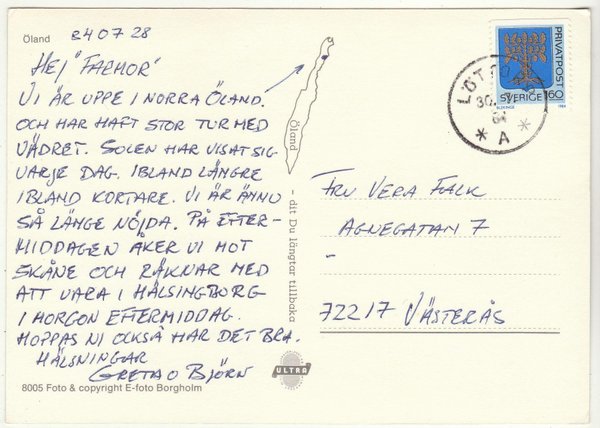 Öland
84 07 28
HEJ "FALMOR"
VI ÄR UPPE I NORRA ÖLAND.
OCH HAR HAFT STOR TUR MED
VÄDRET. SOLEN HAR VISAT SIG
VARJE DAG. IBLAND LÄNGRE
IBLAND KORTARE. VI ÄR ÄNNU
SÅ LÄNGE NÖJDA. PÅ EFTER-
MIDDAGEN ÅKER VI MOT
SKÅNE OCH RÄKNAR MED
ATT VARA I HÄLSINGBORG
I MORGON EFTERMIDDAG.
HOPPAS NI OCKSÅ HAR DET BRA.
HÄLSNINGAR
GRETA O BJÖRN
8005 Foto & copyright E-foto Borgholm
Öland
- dit Du längtar tillbaka
ULTRA
PRIVATPOST
SVERIGE 160
BLEKINGE
1984
LÖT
30.
A
FRU VERA FALK
AGNEGATAN 7
-
72217 VÄSTERÅS